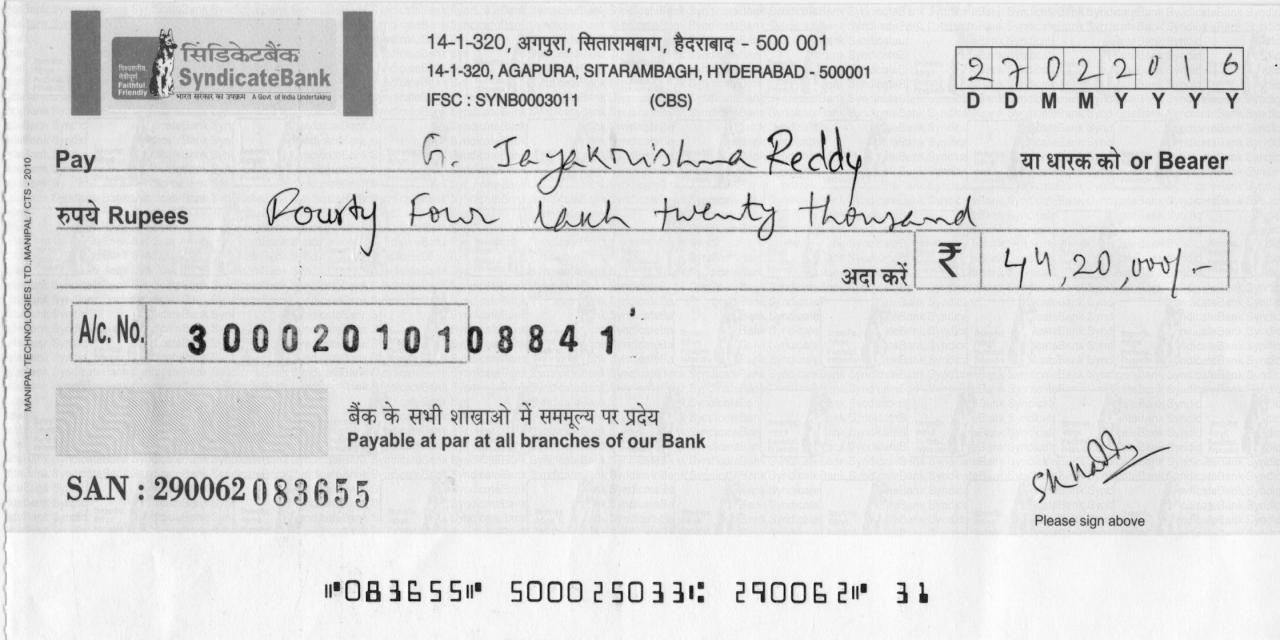 सिंडिकेटबैंक
SyndicateBank
विश्वसनीय, मैत्रीपूर्ण
Faithful Friendly
भारत सरकार का उपक्रम A Govt. of India Undertaking
14-1-320, अगपुरा, सितारामबाग, हैदराबाद - 500 001
14-1-320, AGAPURA, SITARAMBAGH, HYDERABAD - 500001
IFSC : SYNB0003011 (CBS)
2 7 0 2 2 0 1 6
D D M M Y Y Y Y
Pay G. Jayakrishna Reddy या धारक को or Bearer
रुपये Rupees Fourty Four lakh twenty thousand
अदा करें ₹ 44,20,000/-
A/c. No. 30002010108841
बैंक के सभी शाखाओ में सममूल्य पर प्रदेय
Payable at par at all branches of our Bank
SAN : 290062 083655
Please sign above
⑈083655⑈ 500025033⑆ 290062⑈ 31
MANIPAL TECHNOLOGIES LTD.,MANIPAL / CTS - 2010